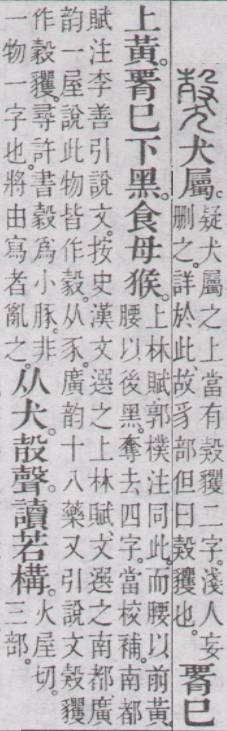 㺉 犬屬。疑犬屬之上當有㺉玃二字。淺人妄
刪之。詳於此、故豸部但曰㺉玃也。
𦝫巳
上黃。𦝫巳下黑。食母猴。上林賦、郭樸注同此。而腰以前黃
腰以後黑。奪去四字。當校補。南都
賦注李善引說文。按史漢文選之上林賦、文選之南都廣
韵一屋說此物皆作豰。从豕。廣韵十八藥又引說文豰玃
作豰玃。尋許書豰爲小豚。非
一物一字也。將由寫者亂之。
从犬。㱿聲。讀若構。火屋切。
三部。